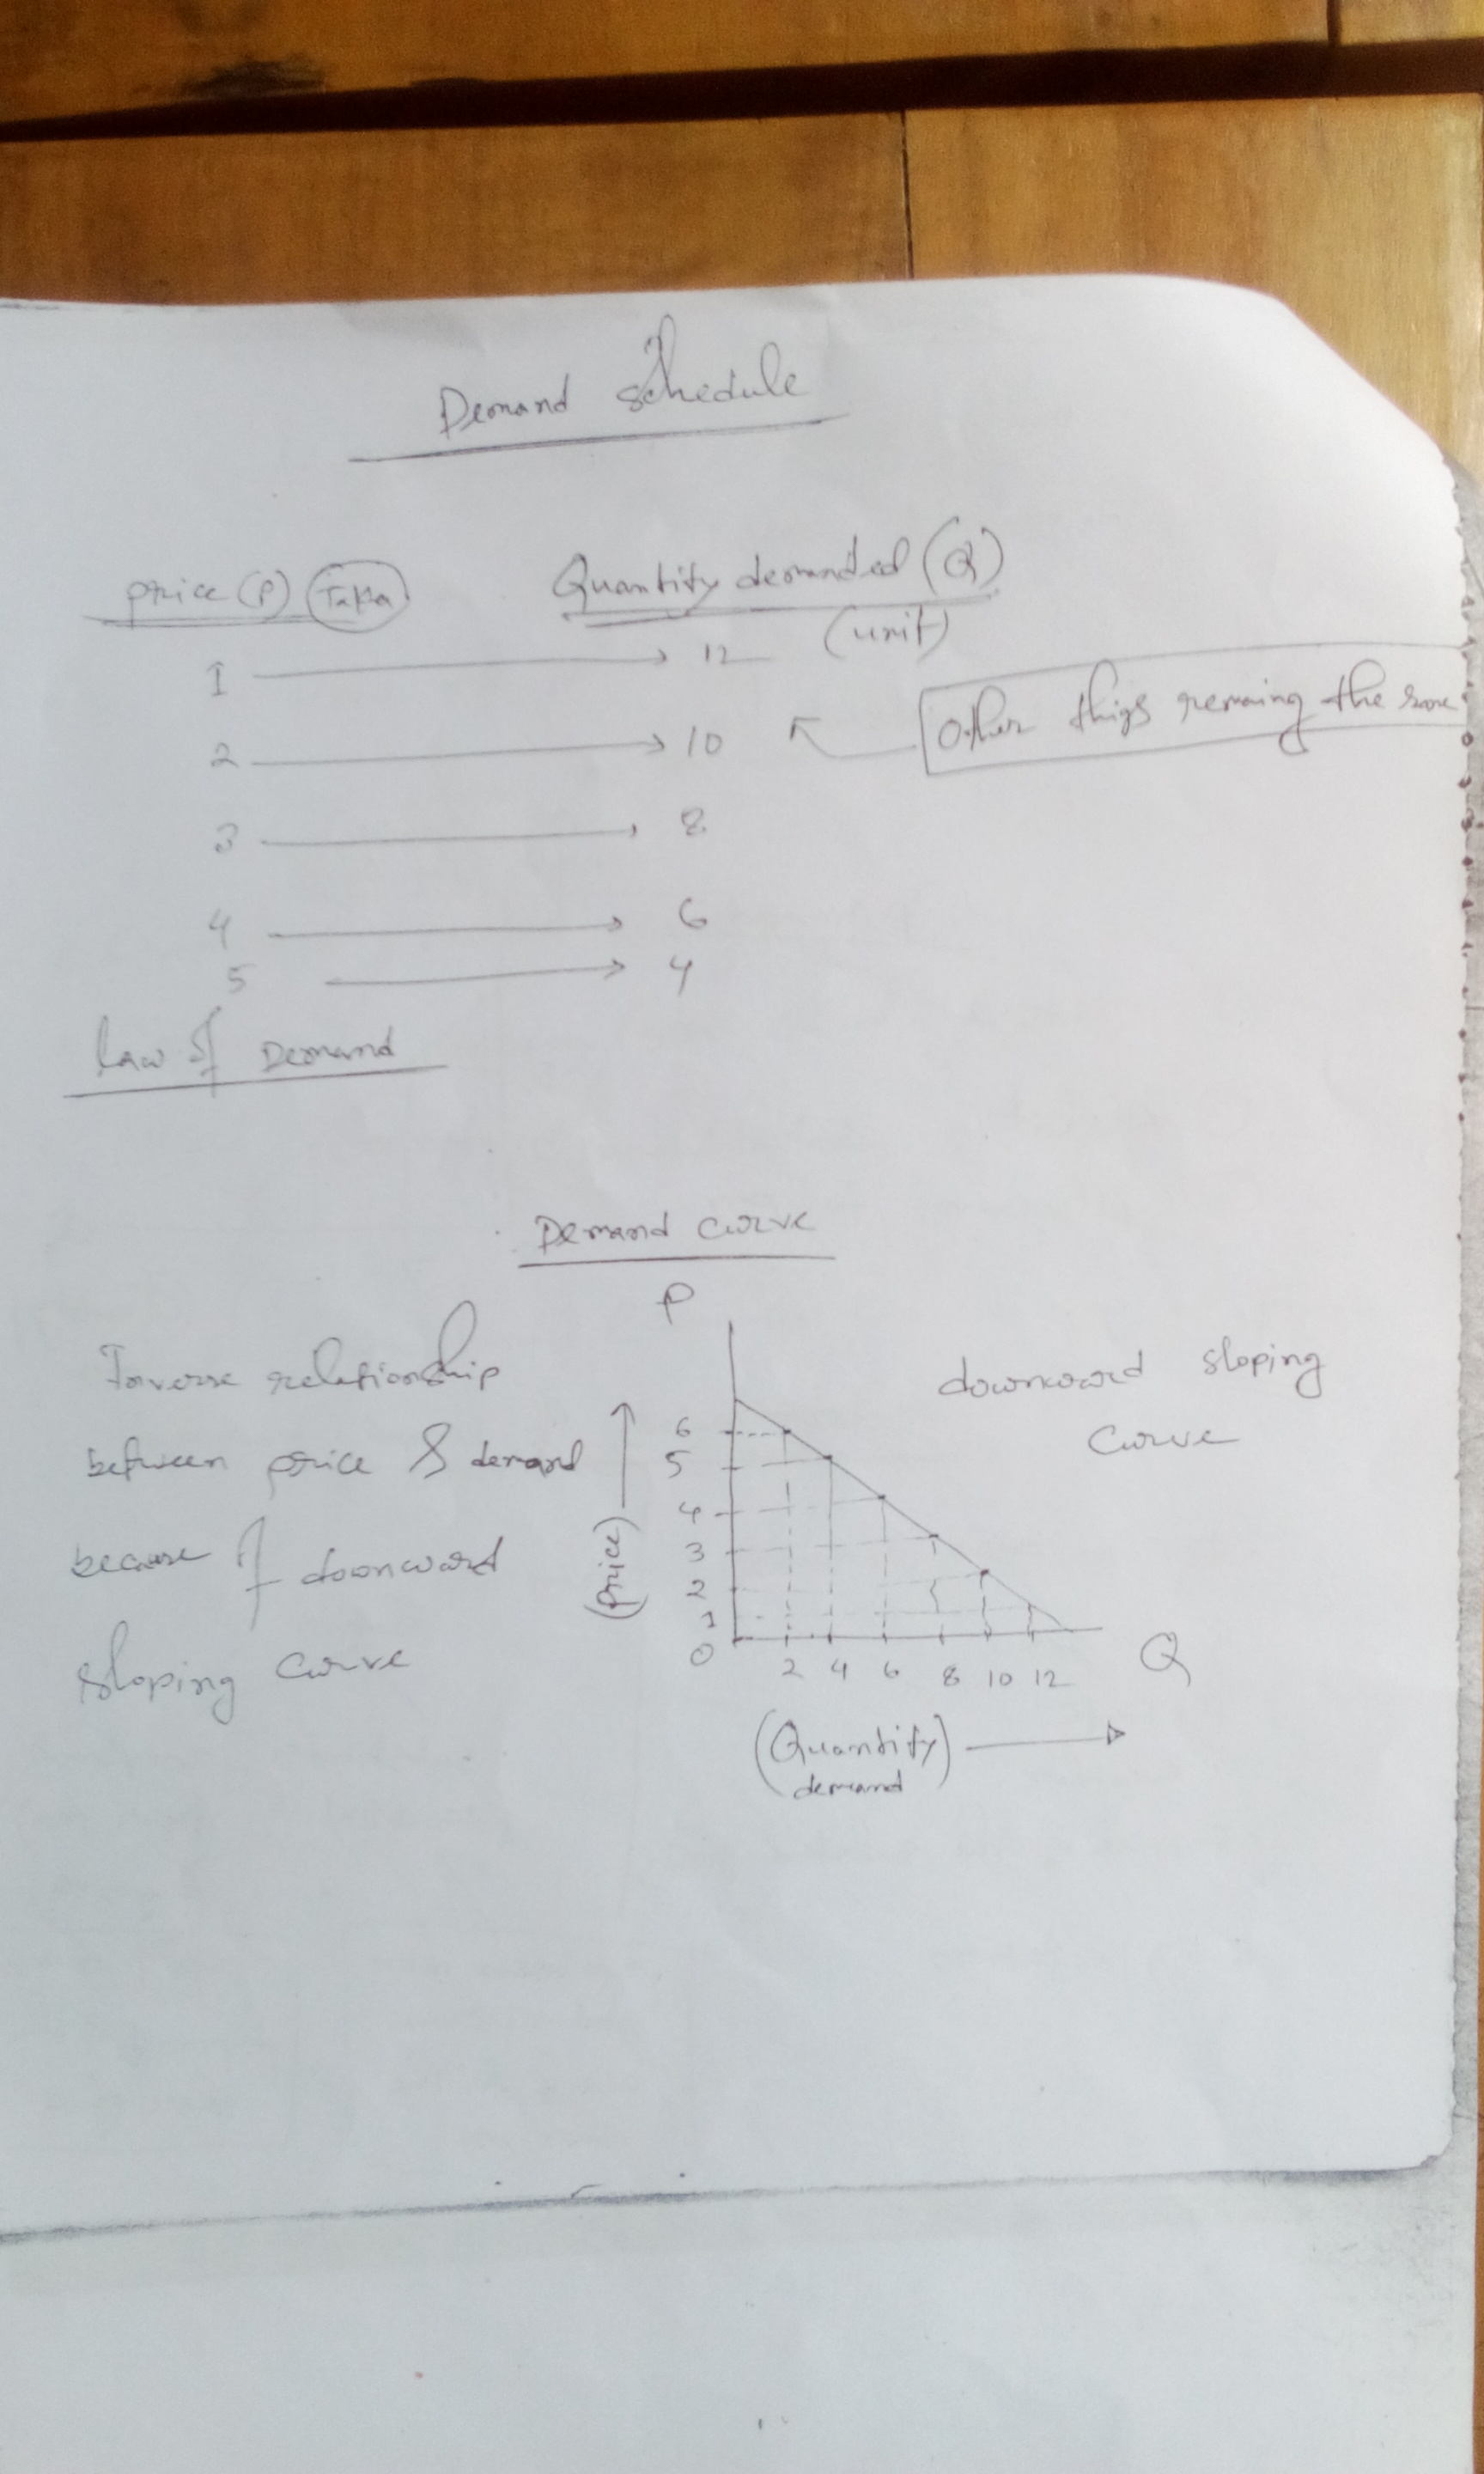 Demand schedule
price (P) (Taka) Quantity demanded (Q)
(unit)
1 → 12
2 → 10
Other thigs remaing the same
3 → 8
4 → 6
5 → 4
law of Demand
Demand curve
P
Inverse relationship
between price & demand
because of downward
sloping curve
downward sloping
curve
(price) →
6
5
4
3
2
1
0
2 4 6 8 10 12
Q
(Quantity →
demand)